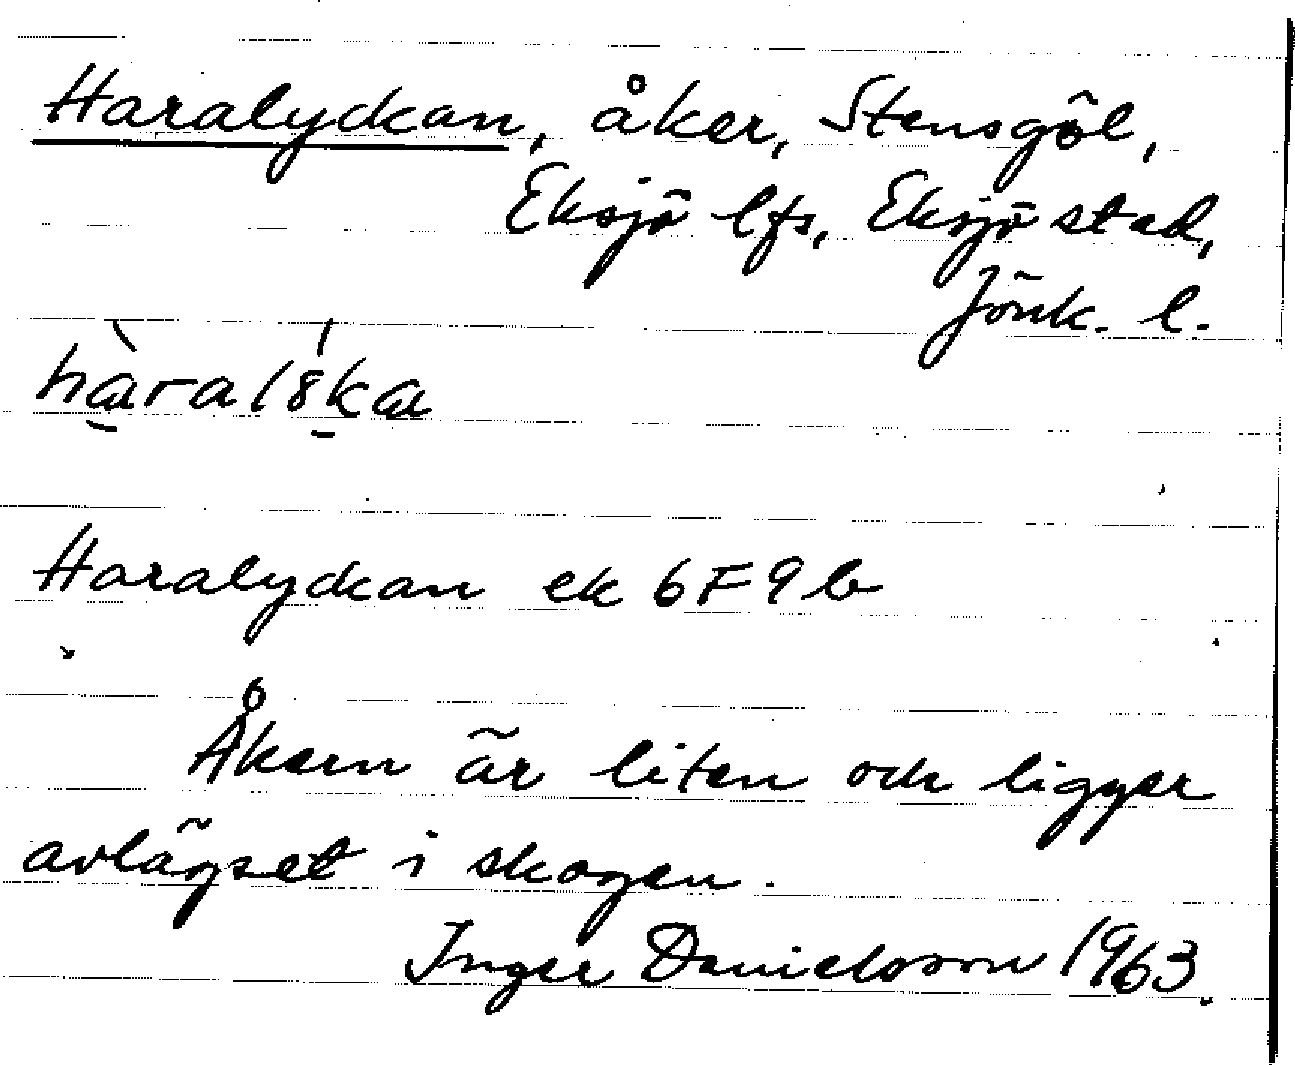 Haralyckan, åker, Stensgöl,
Eksjö lfs, Eksjö stad,
Jönk. l.
Haralyckan ek 6F9b
Åkern är liten och ligger
avlägset i skogen.
Inger Danielsson 1963.